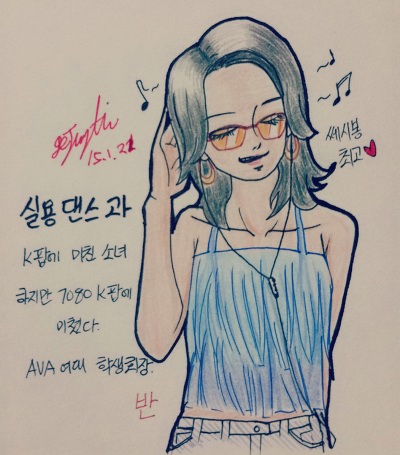 15.1.21
쎄시봉
최고
실용 댄스 과
K팝에 미친 소녀
하지만 7080 K팝에
미쳤다.
AVA 여대 학생회장.
반